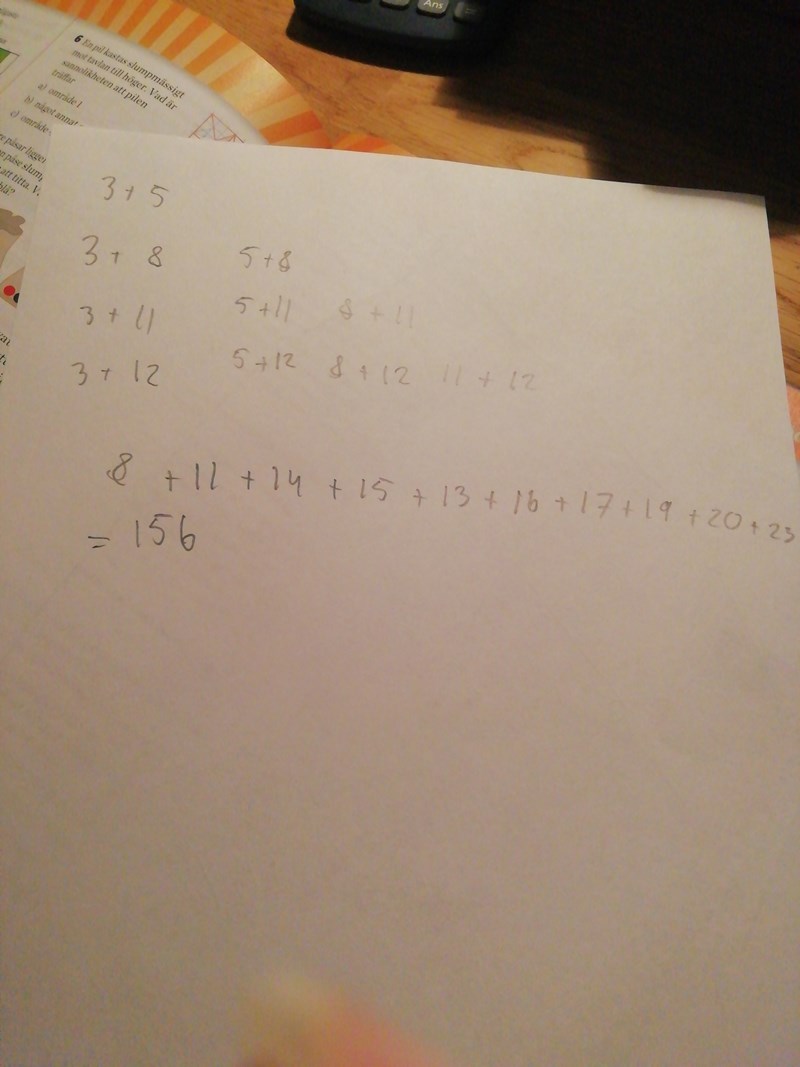 Ans
6 En pil kastas slumpmässigt
mot tavlan till höger. Vad är
sannolikheten att pilen
träffar
a) område 1
b) något annat
c) område
3 + 5
3 + 8 5+8
3 + 11 5+11 8 + 11
3 + 12 5+12 8 + 12 11 + 12
8 + 11 + 14 + 15 + 13 + 16 + 17 + 19 + 20 + 23
= 156